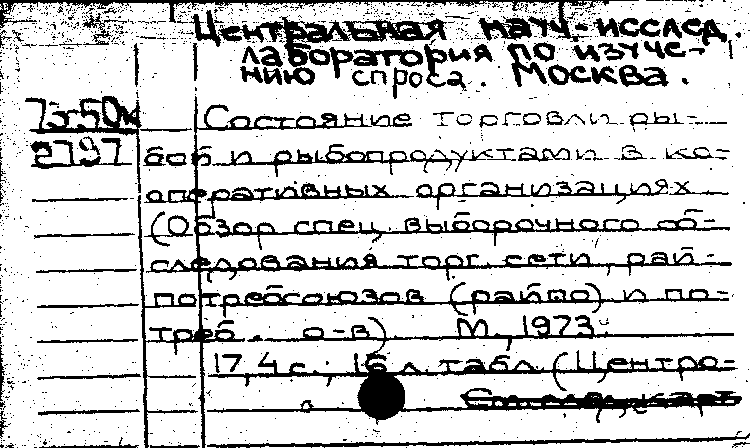 Центральная науч-исслед.
лаборатория по изуче-
нию спроса. Москва.
Состояние торговли ры-
бой и рыбопродуктами в ко-
оперативных организациях.
(Обзор спец. выборочного об-
следования торг. сети, рай-
потребсоюзов (райпо) и по-
треб. о-в) М., 1973.
17,4 с.; 16 л. табл. (Центро-